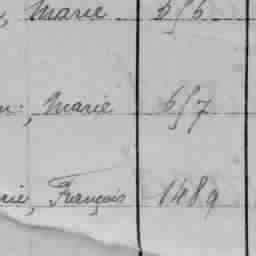 , Marie 656
, Marie 657
rie, François 1489